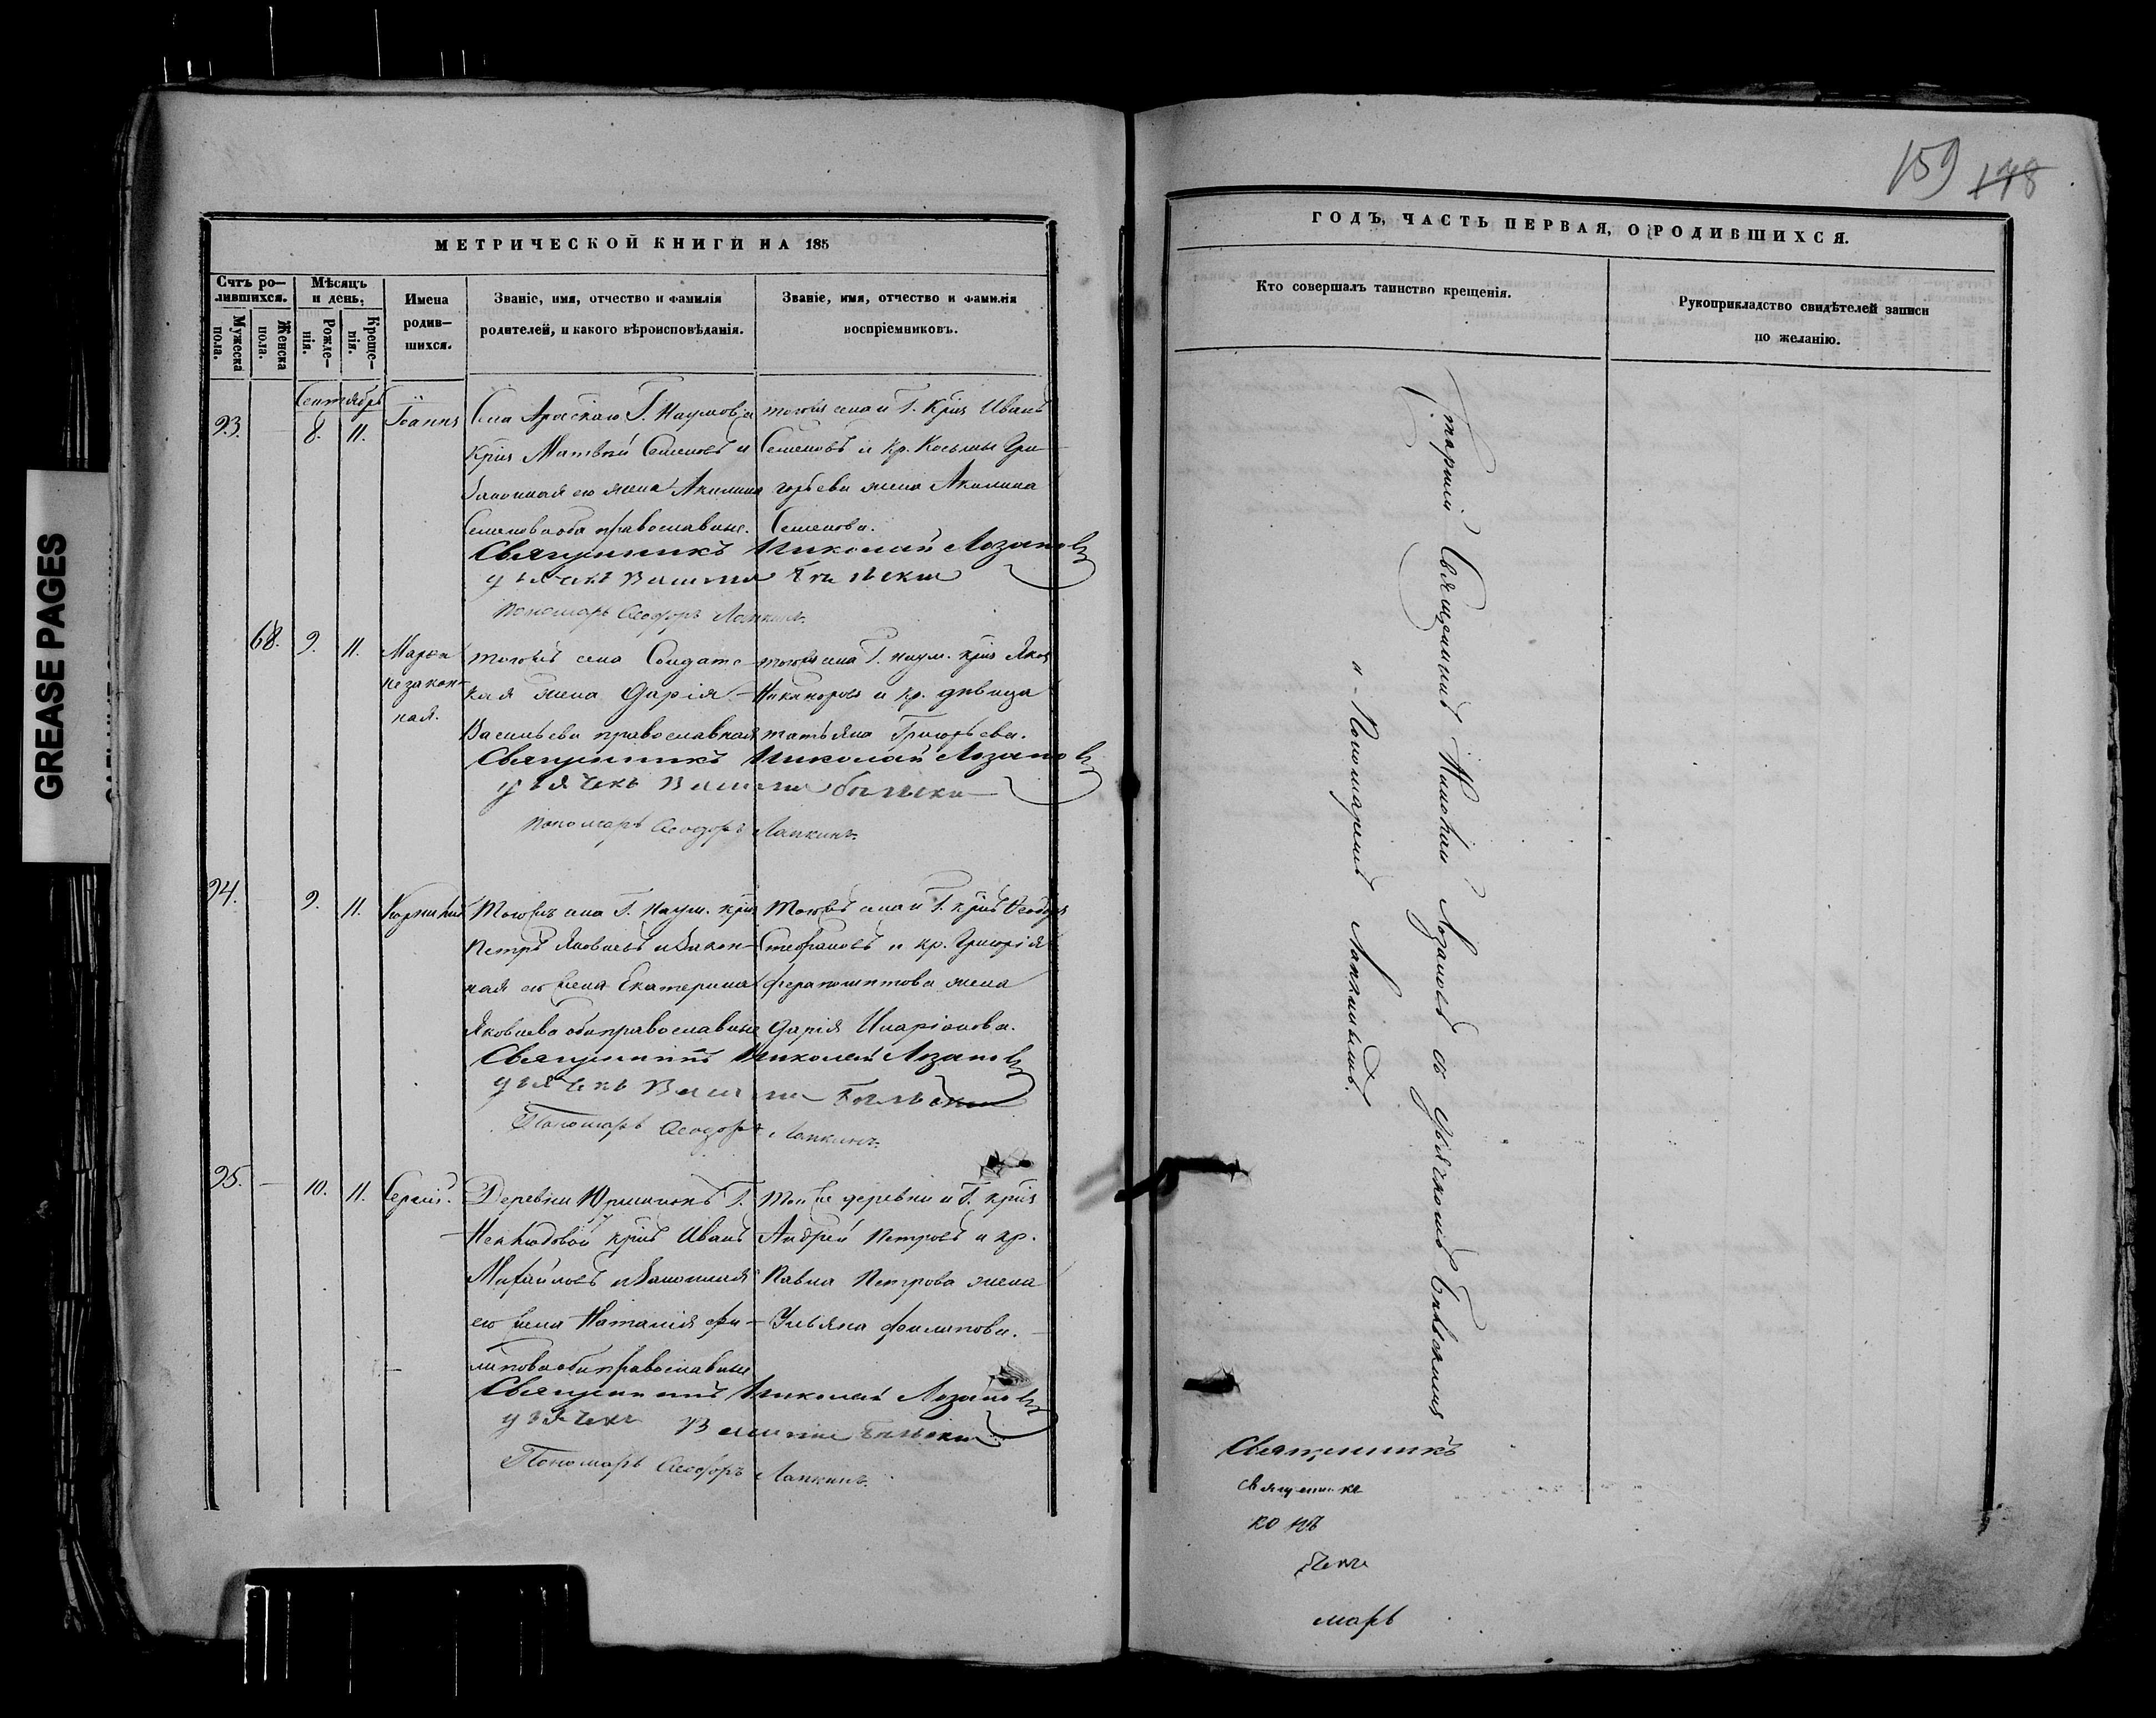 GREASE PAGES
МЕТРИЧЕСКОЙ КНИГИ НА 185
Счтъ ро-
лившихся.
Мужеска
пола.
Женска
пола.
Мѣсяцъ
и день.
Рожде-
нія.
Креще-
нія.
Имена
родив-
шихся.
Званіе, имя, отчество и фамилія
родителей, и какого вѣроисповѣданія.
Званіе, имя, отчество и фамилія
воспріемниковъ.
Сентябрь
93.
8.
11.
Іоаннъ
Села Г. Наумова
Матвѣй Семеновъ и
законная его жена Акилина
Семенова оба православные.
тогоже села и Г. Иванъ
Семеновъ и кр. Косьмы Гри-
горьева жена Акилина
Семенова.
Священникъ Николай Лозановъ
дьячекъ
Пономарь Ѳеодоръ Лапкинъ.
68.
9.
11.
Марѳа
незакон-
ная.
тогожъ села Солдатс-
кая жена Дарія
Васильева православная
тогоже села Г. Наум.
Никаноровъ и кр. дѣвица
татьяна Григорьева.
Священникъ Николай Лозановъ
дьячекъ
пономарь Ѳеодоръ Лапкинъ.
94.
9.
11.
Корнилій
Тогожъ села Г. Наум.
Петръ Яковлевъ и закон-
ная его жена Екатерина
Яковлева оба православные
Тогожъ села и Г. Ѳеодоръ
Стефановъ и кр. Григорія
ферапонтова жена
Дарія Иларіонова.
Священникъ Николай Лозановъ
дьячекъ
Пономарь Ѳеодоръ Лапкинъ.
95.
10.
11.
Сергій.
Деревни Г.
Неклюдовой Иванъ
Михайловъ и законная
его жена Наталія фи-
липова оба православные
Тойже деревни и Г.
Андрей Петровъ и кр.
Павла Петрова жена
Ульяна филипова.
Священникъ Николай Лозановъ
дьячекъ
Пономарь Ѳеодоръ Лапкинъ.
159 178
ГОДЪ, ЧАСТЬ ПЕРВАЯ, О РОДИВШИХСЯ.
Кто совершалъ таинство крещенія.
Рукоприкладство свидѣтелей записи
по желанію.
Старшій Священникъ Николай Лозановъ съ дьячкомъ Бѣльскимъ
и Пономаремъ Лапкинымъ.
Священникъ
марь